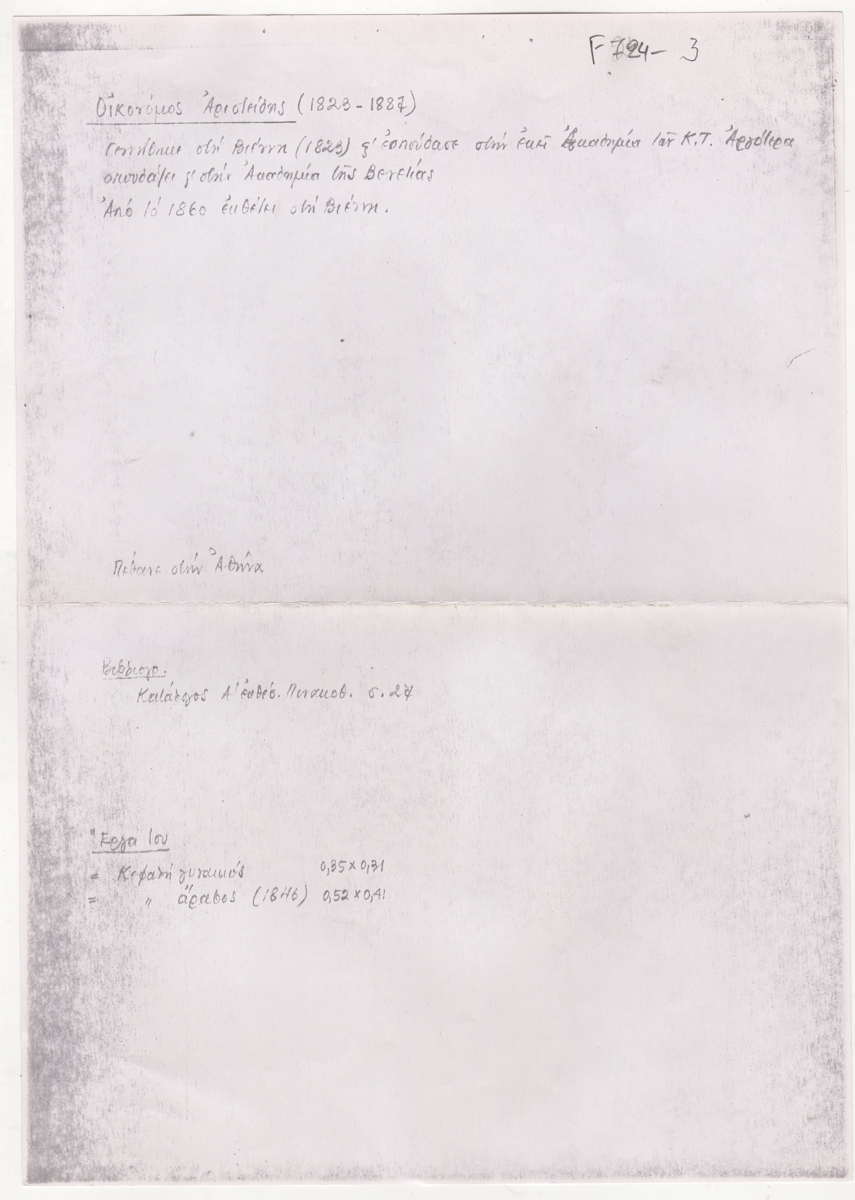 F 724-3
Οἰκονόμος Ἀριστείδης (1823-1887)
Γεννήθηκε στή Βιέννη (1823) ϗ' ἐσπούδασε στήν ἐκεῖ Ἀκαδημία τῶν Κ.Τ. Ἀργότερα
σπουδάζει ϗ' στήν Ἀκαδημία τῆς Βενετίας
Ἀπό τό 1860 ἐκθέτει στή Βιέννη.
Πέθανε στήν Ἀθήνα
Βιβλιογρ.
Κατάλογος Α' ἐκθέσ. Πινακοθ. σ. 27
Ἔργα του
= Κεφαλή γυναικός 0,35 x 0,31
= " ἄραβος (1846) 0,52 x 0,41